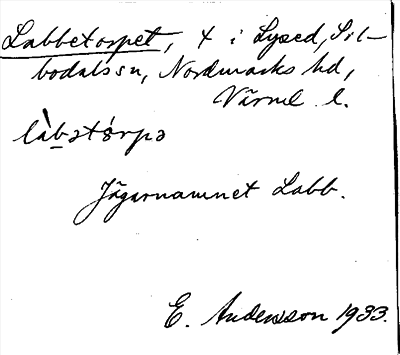 Labbetorpet, t i Lysed, Sil-
bodals sn, Nordmarks hd,
Värml. l.
làbətórpə
Jägarnamnet Labb.
E. Andersson 1933.